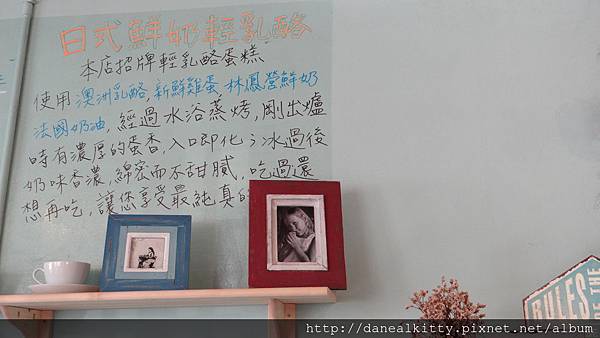 日式鮮奶輕乳酪
本店招牌輕乳酪蛋糕
使用澳洲乳酪,新鮮雞蛋,林鳳營鮮奶
法國奶油,經過水浴蒸烤,剛出爐
時有濃厚的蛋香,入口即化;冰過後
奶味香濃,綿密而不甜膩,吃過還
想再吃,讓您享受最純真的
RULES
THE
http://danealkitty.pixnet.net/album